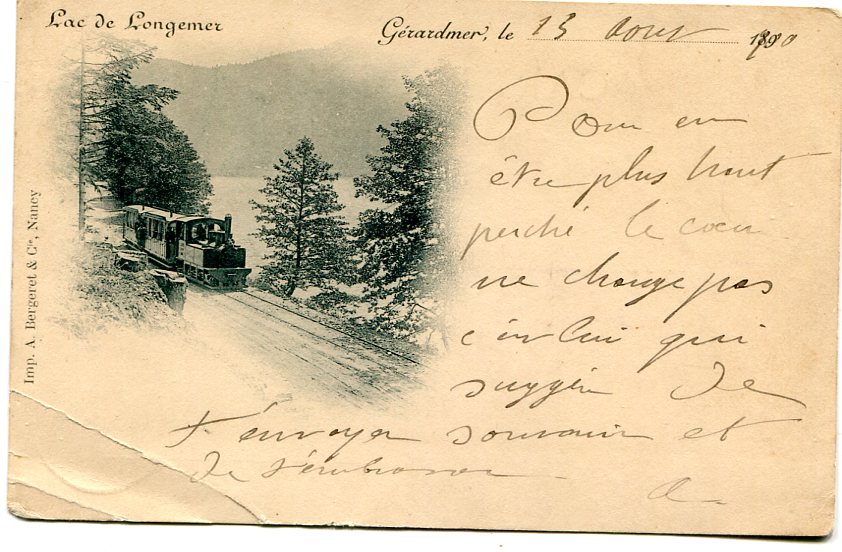 Lac de Longemer
Gérardmer, le 13 Aout 1890
Imp. A. Bergeret & Cie, Nancy
Pour en
être plus haut
perché le coeur
ne change pas
c'est lui qui
suggère de
t'envoyer souvenir et
de t'embrasser